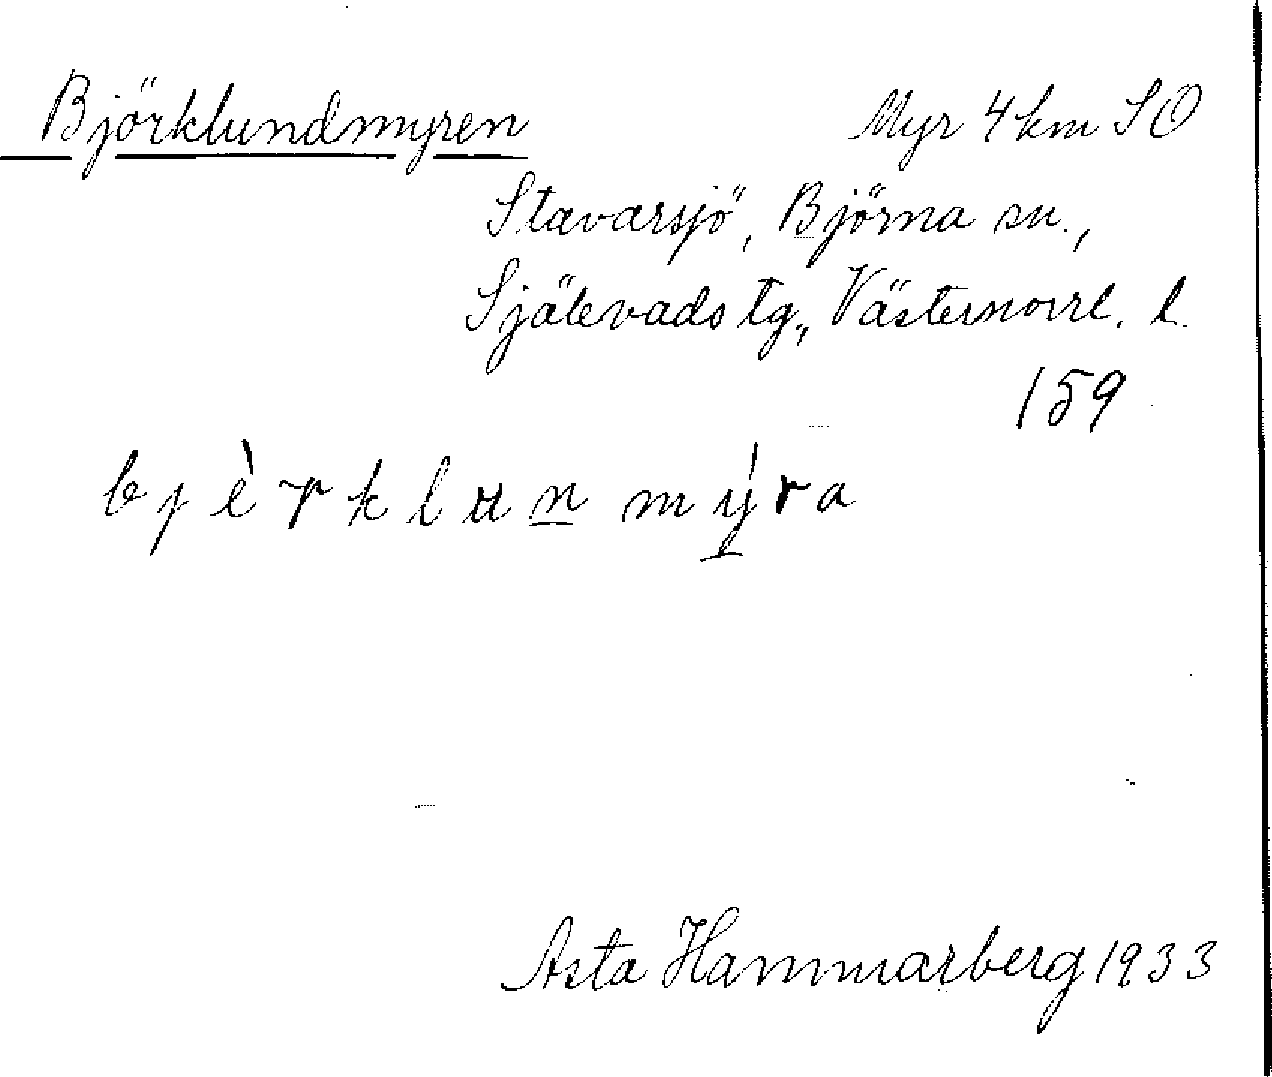 Björklundmyren Myr 4 km SO
Stavarsjö, Björna sn.,
Själevads tg., Västernorrl. l.
159
bjèrklun̲ mý̲ra
Asta Hammarberg 1933